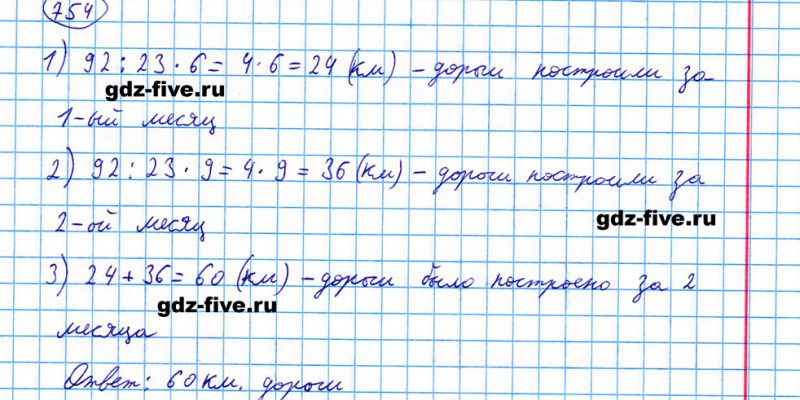 754
1) 92 : 23 · 6 = 4 · 6 = 24 (км) – дороги построили за
gdz-five.ru
1-ый месяц
2) 92 : 23 · 9 = 4 · 9 = 36 (км) – дороги построили за
gdz-five.ru
2-ой месяц
3) 24 + 36 = 60 (км) – дороги было построено за 2
gdz-five.ru
месяца
Ответ: 60 км. дороги